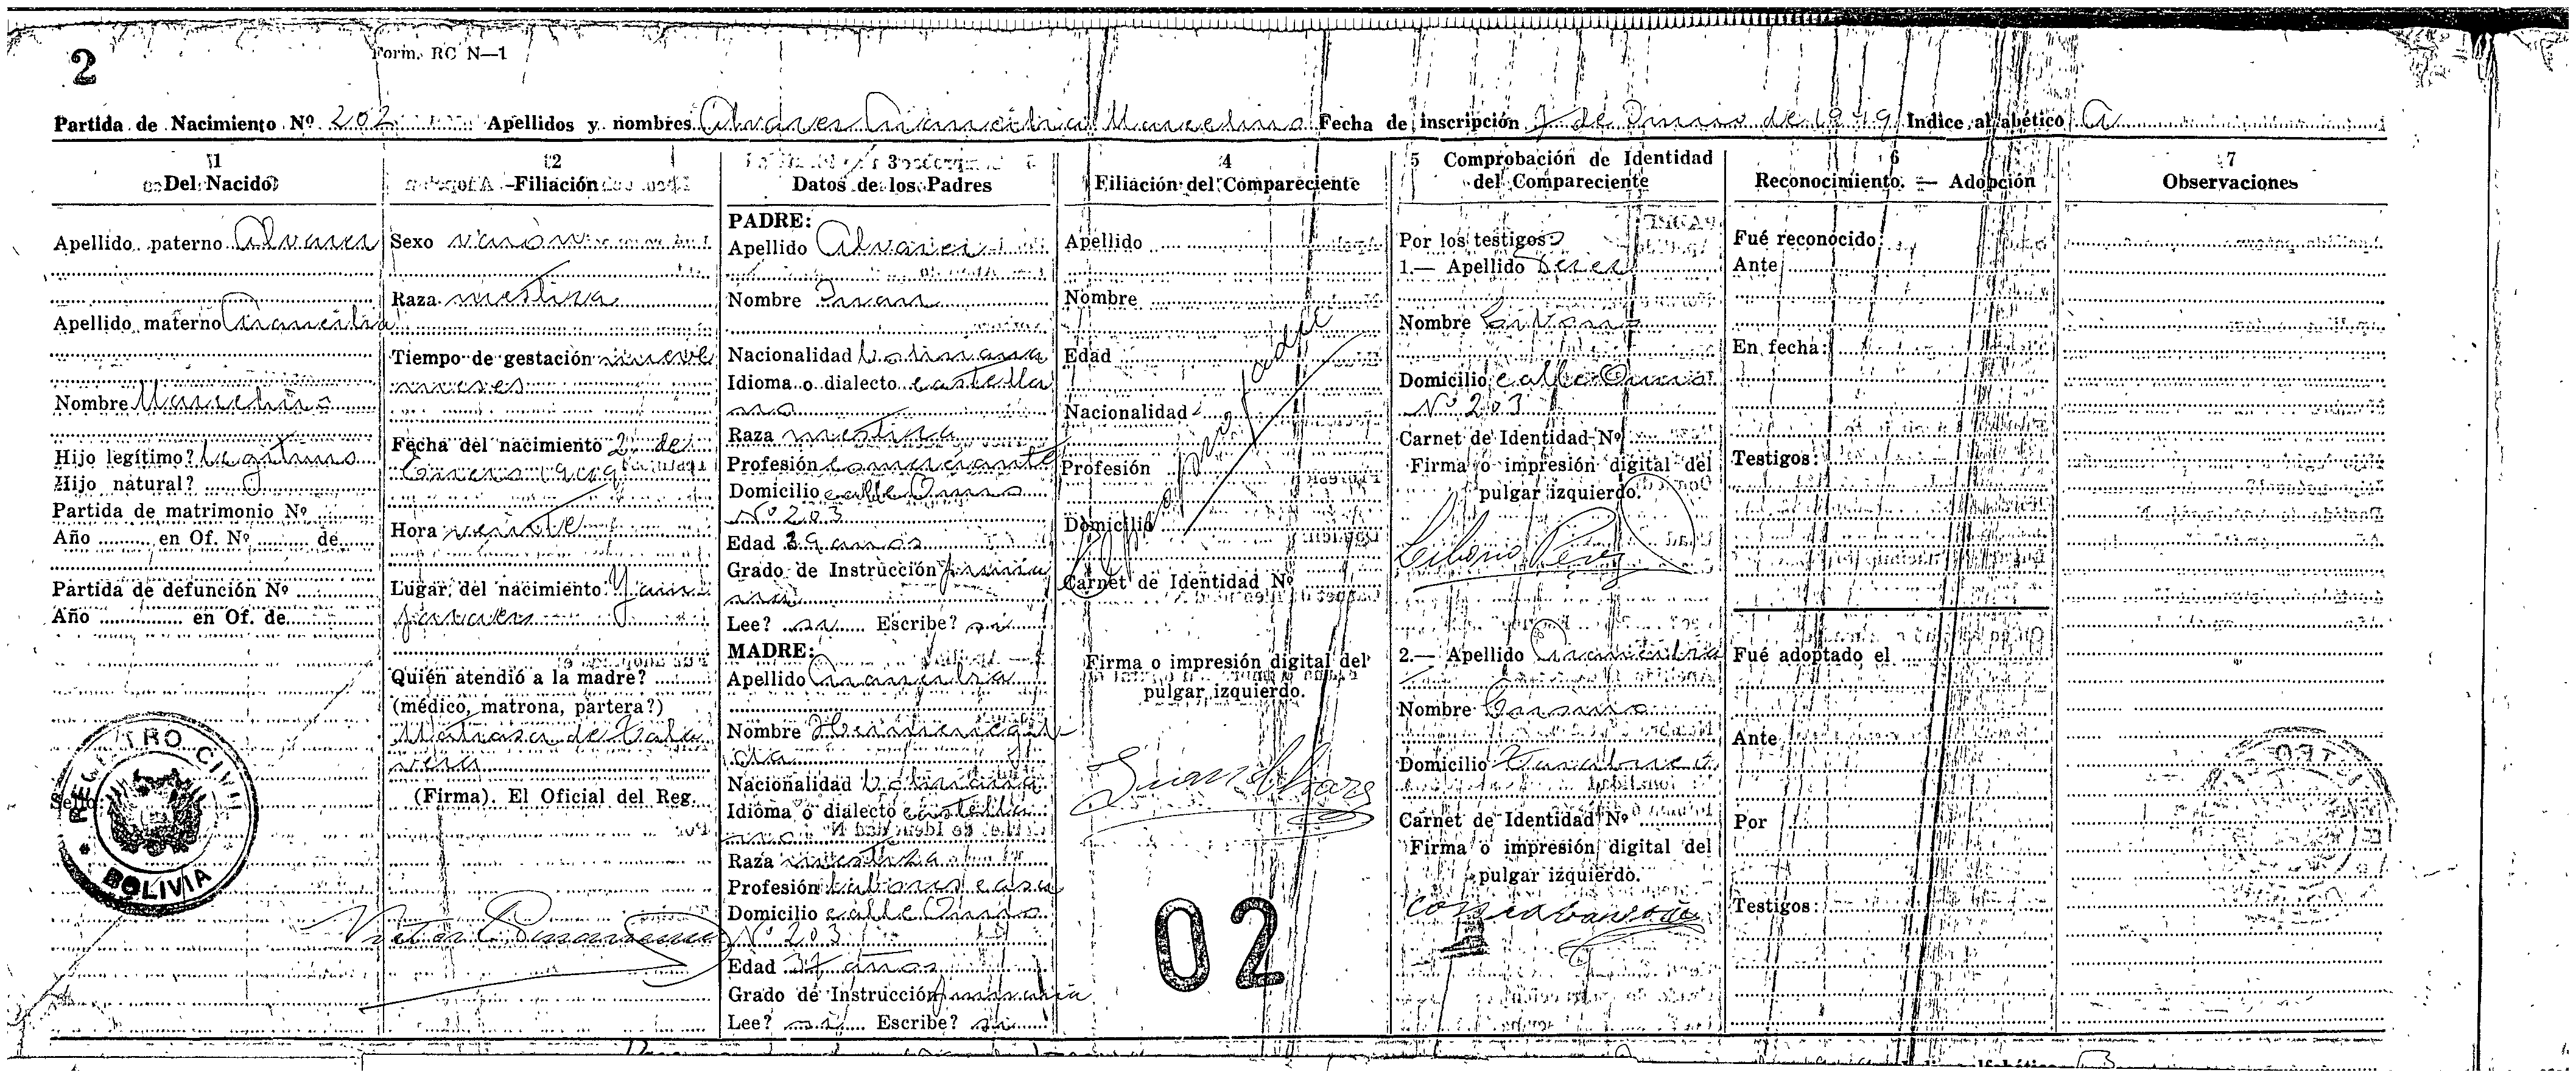 2
Form. RC N—1
Partida de Nacimiento Nº 202 Apellidos y nombres Alvares Marcelino Fecha de inscripción de 1949 Indice alfabético A
1
Del Nacido
Apellido paterno Alvarez
Apellido materno
Nombre Marcelino
Hijo legítimo? legitimo
Hijo natural?
Partida de matrimonio Nº
Año en Of. Nº de
Partida de defunción Nº
Año en Of. de
Sello:
REGISTRO CIVIL
BOLIVIA
2
Filiación
Sexo varón
Raza mestiza
Tiempo de gestación nueve
meses
Fecha del nacimiento 2 de
Enero 1949
Hora veinte
Lugar del nacimiento
Quién atendió a la madre?
(médico, matrona, partera?)
(Firma). El Oficial del Reg.
3
Datos de los Padres
PADRE:
Apellido Alvarez
Nombre Juan
Nacionalidad boliviana
Idioma o dialecto castella
no
Raza mestiza
Profesión comerciante
Domicilio calle Oruro
Nº 203
Edad 39 años
Grado de Instrucción prima
ria
Lee? si Escribe? si
MADRE:
Apellido
Nombre Hermenegil
da
Nacionalidad boliviana
Idioma o dialecto castella
no
Raza mestiza
Profesión labores casa
Domicilio calle Oruro
Nº 203
Edad 37 años
Grado de Instrucción primaria
Lee? si Escribe? si
4
Filiación del Compareciente
Apellido
Nombre
Edad
Nacionalidad
Profesión
Domicilio
Carnet de Identidad Nº
El propio padre
Firma o impresión digital del
pulgar izquierdo.
Juan Alvarez
02
5 Comprobación de Identidad
del Compareciente
Por los testigos:
1.— Apellido Perez
Nombre
Domicilio calle Oruro
Nº 203
Carnet de Identidad Nº
Firma o impresión digital del
pulgar izquierdo.
Perez
2.— Apellido
Nombre
Domicilio
Carnet de Identidad Nº
Firma o impresión digital del
pulgar izquierdo.
6
Reconocimiento. — Adopción
Fué reconocido
Ante
En fecha:
Testigos:
Fué adoptado el
Ante
Por
Testigos:
7
Observaciones